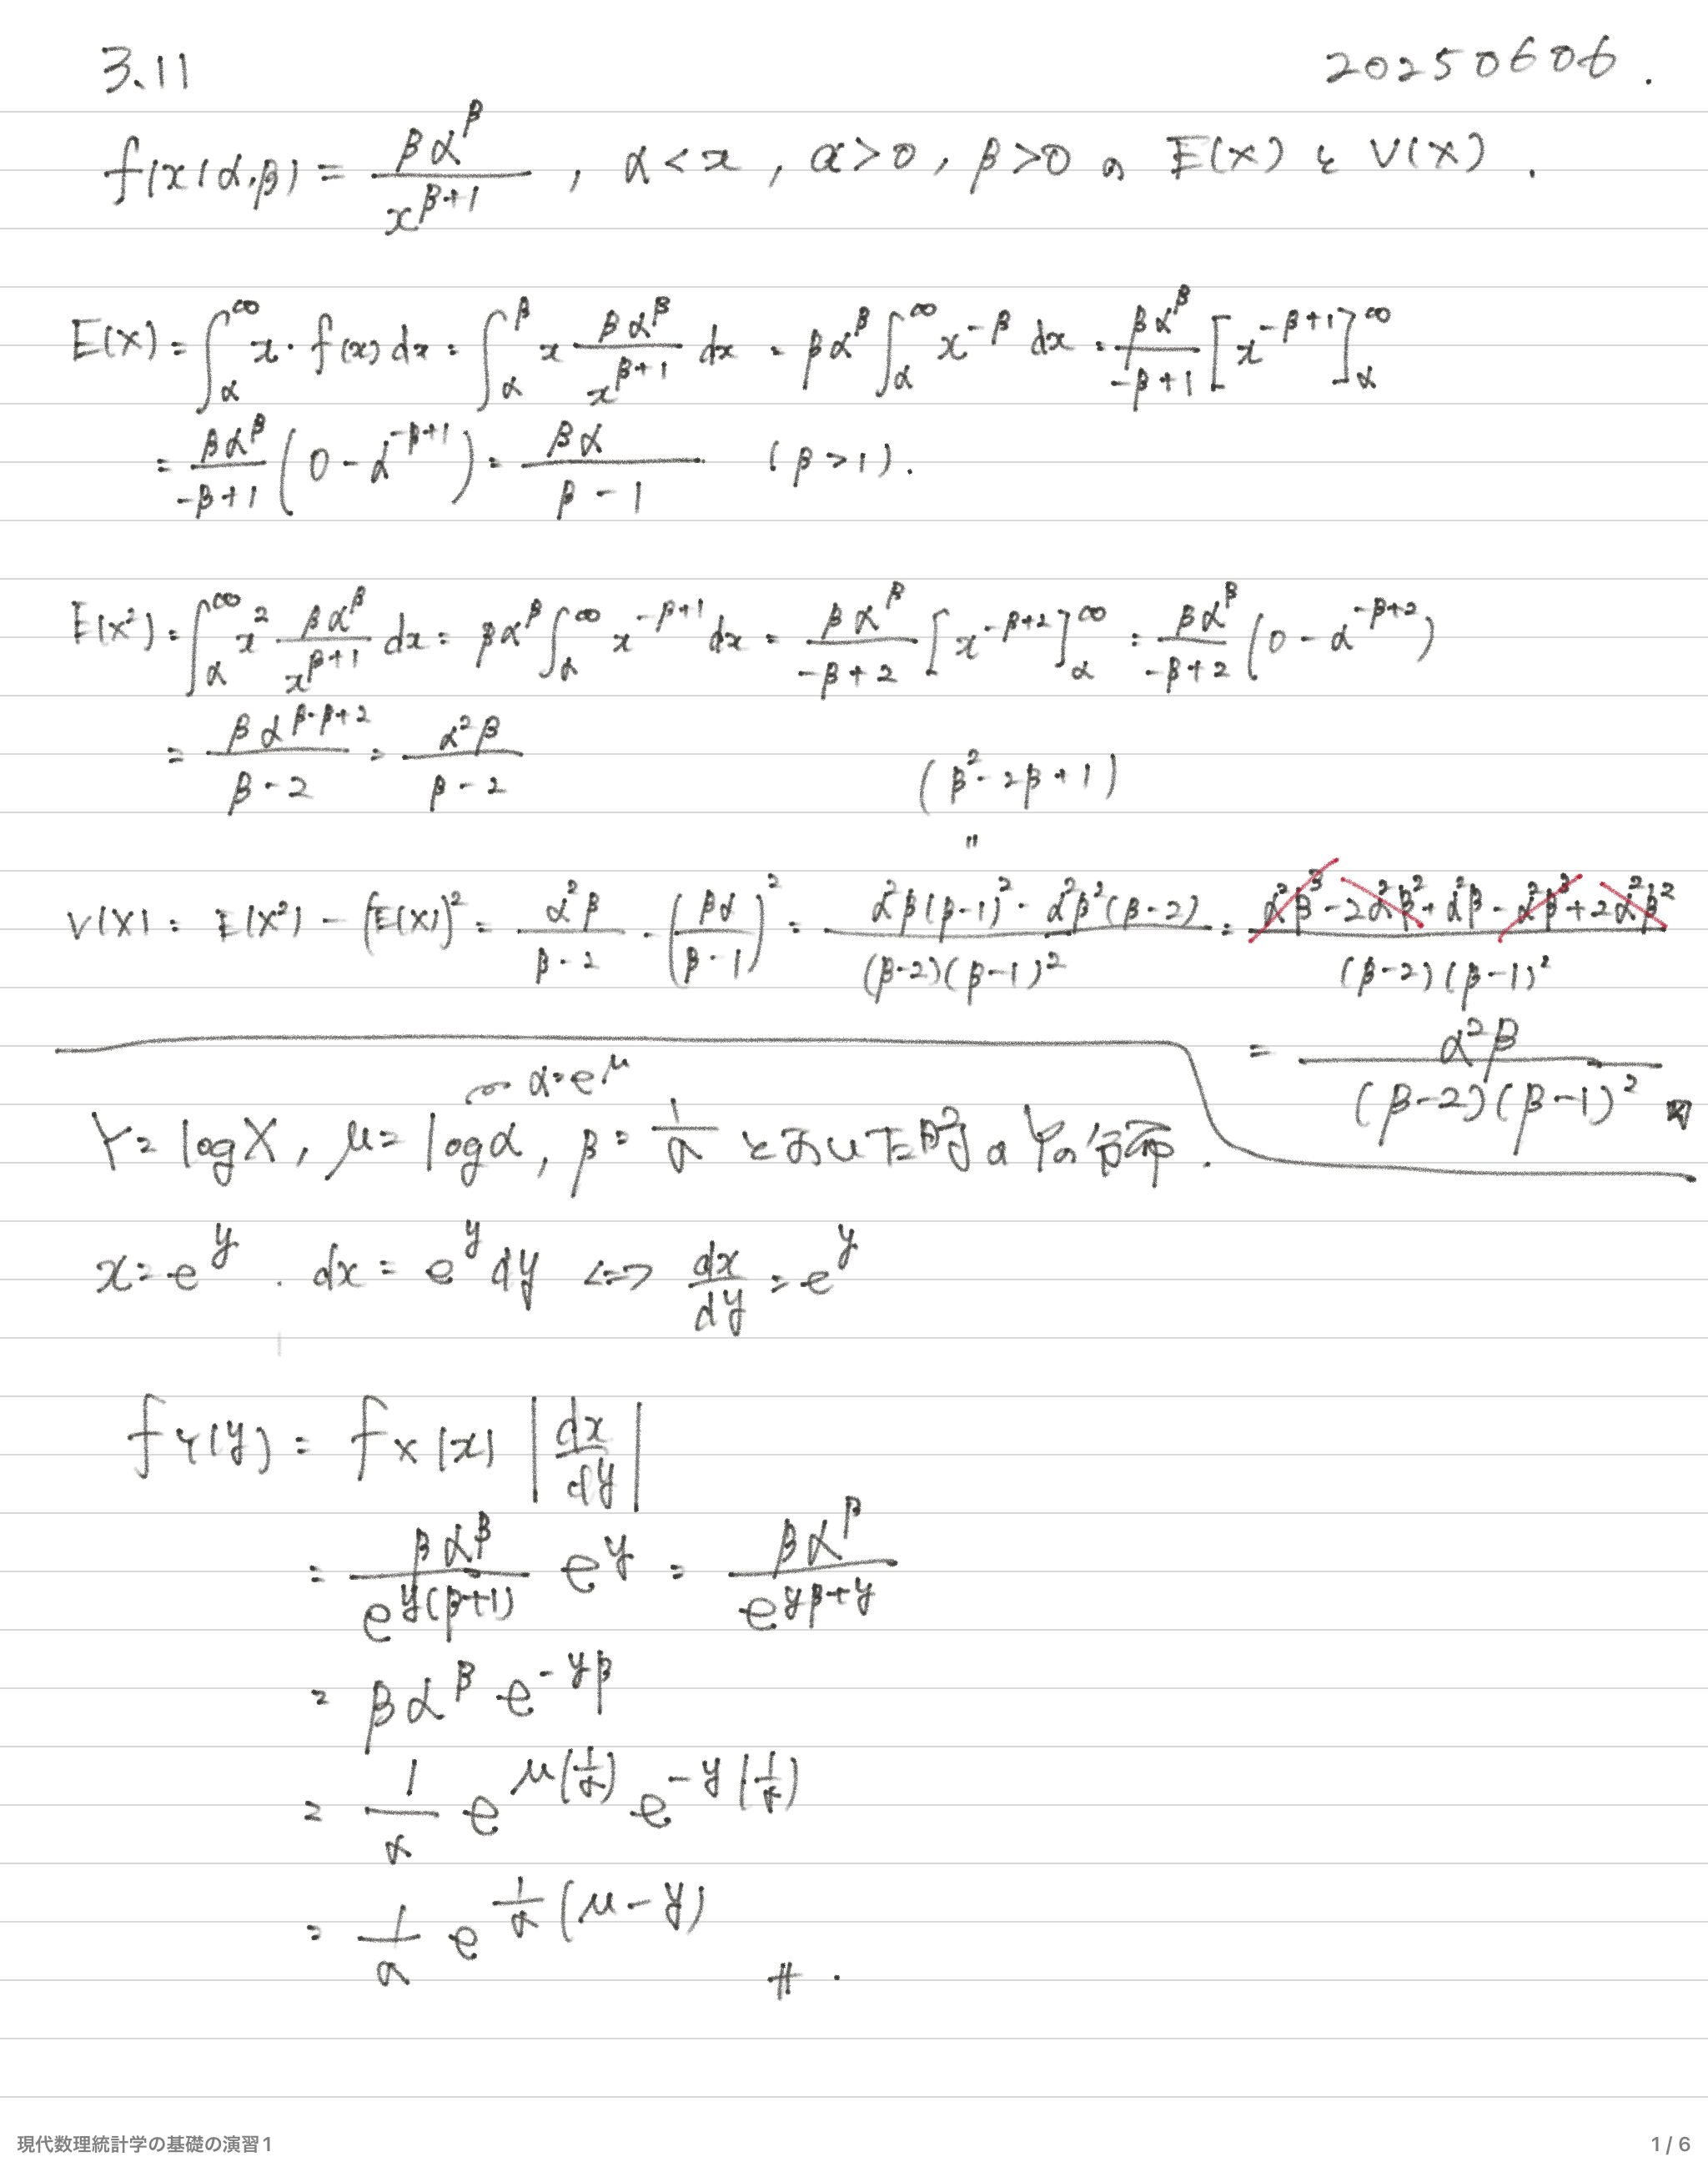 3.11 20250606.
f(x|α,β) = βα^β / x^{β+1} , α<x , α>0, β>0 の E(X) と V(X) .
E(X) = ∫_α^∞ x・f(x)dx = ∫_α^β x βα^β / x^{β+1} dx = βα^β ∫_α^∞ x^{-β} dx = βα^β / -β+1 [x^{-β+1}]_α^∞
= βα^β / -β+1 (0 - α^{-β+1}) = βα / β-1 (β>1).
E(X²) = ∫_α^∞ x² βα^β / x^{β+1} dx = βα^β ∫_α^∞ x^{-β+1} dx = βα^β / -β+2 [x^{-β+2}]_α^∞ = βα^β / -β+2 (0 - α^{-β+2})
= βα^{β-β+2} / β-2 = α²β / β-2
(β²-2β+1)
"
V(X) = E(X²) - (E(X))² = α²β / β-2 - (βα / β-1)² = α²β(β-1)² - α²β²(β-2) / (β-2)(β-1)² = α²β³-2α²β²+α²β-α²β³+2α²β² / (β-2)(β-1)²
= α²β / (β-2)(β-1)²
α=e^μ
Y=logX, μ=logα, β=1/σ とおいた時のYの分布.
x=e^y . dx=e^y dy ⇔ dx/dy = e^y
f_Y(y) = f_X(x) |dx/dy|
= βα^β / e^{y(β+1)} e^y = βα^β / e^{yβ+y}
= βα^β e^{-yβ}
= 1/σ e^{μ(1/σ)} e^{-y(1/σ)}
= 1/σ e^{1/σ(μ-y)} #.
現代数理統計学の基礎の演習1 1 / 6